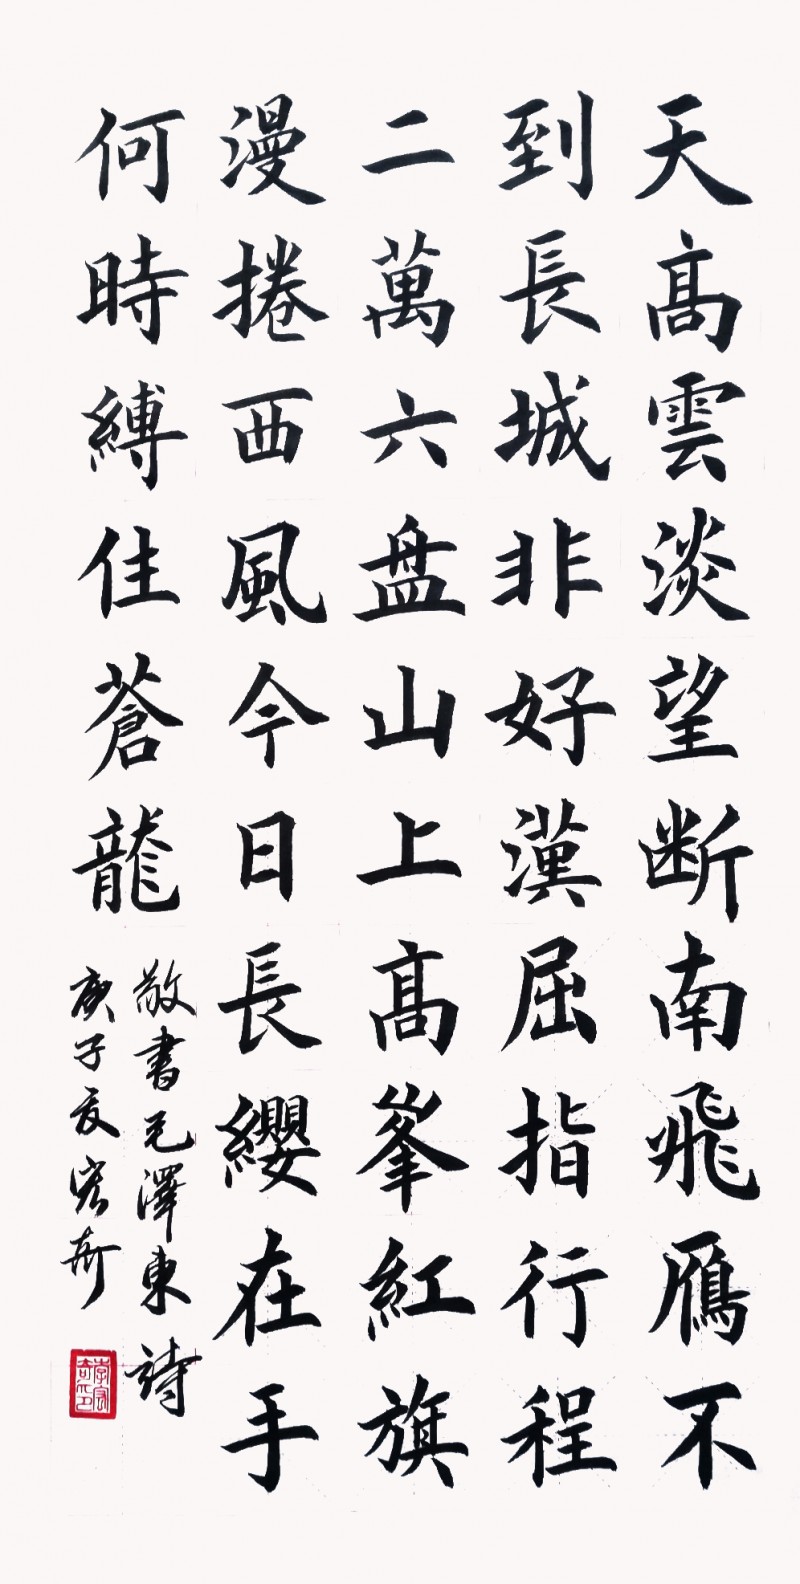 天髙雲淡望断南飛鴈不
到長城非好漢屈指行程
二萬六盘山上髙峯紅旗
漫捲西風今日長纓在手
何時縛住蒼龍
敬書毛澤東詩
庚子夏宏奇